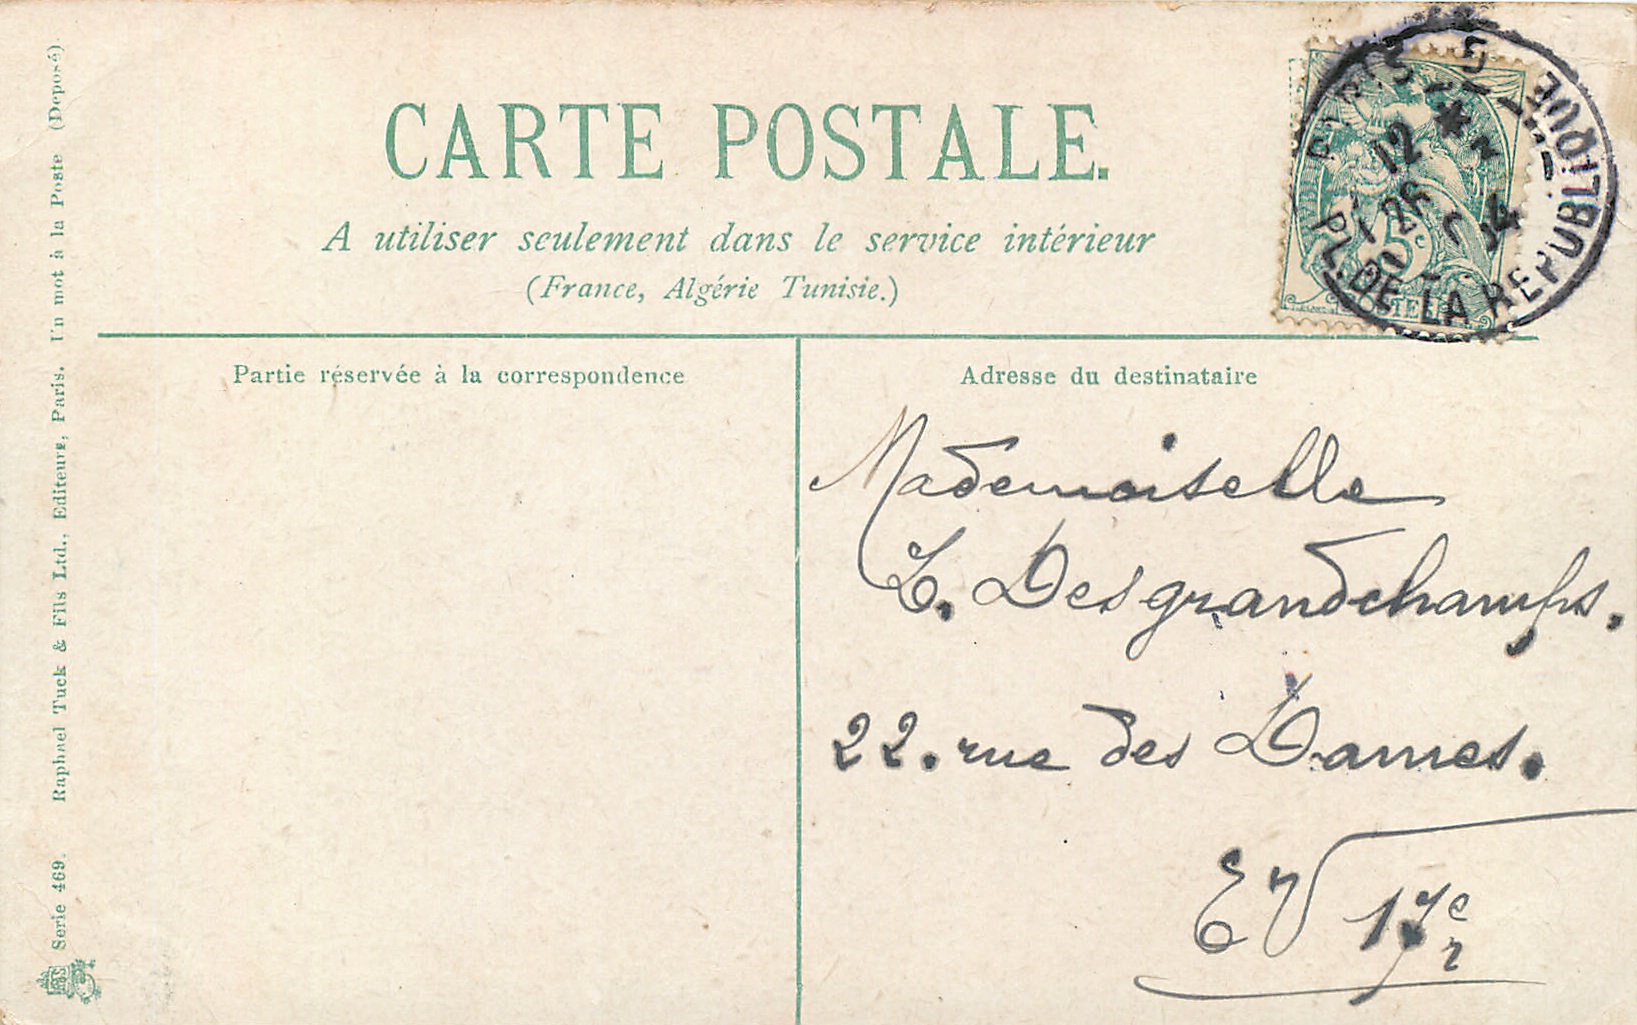 CARTE POSTALE.
A utiliser seulement dans le service intérieur
(France, Algérie Tunisie.)
Partie réservée à la correspondence
Adresse du destinataire
Mademoiselle
L. Desgrandchamps.
22. rue des Dames.
EV 17e
PARIS
12
26
04
PL. DE LA REPUBLIQUE
5c
Serie 469. Raphael Tuck & Fils Ltd., Editeurs, Paris. Un mot à la Poste (Deposé)